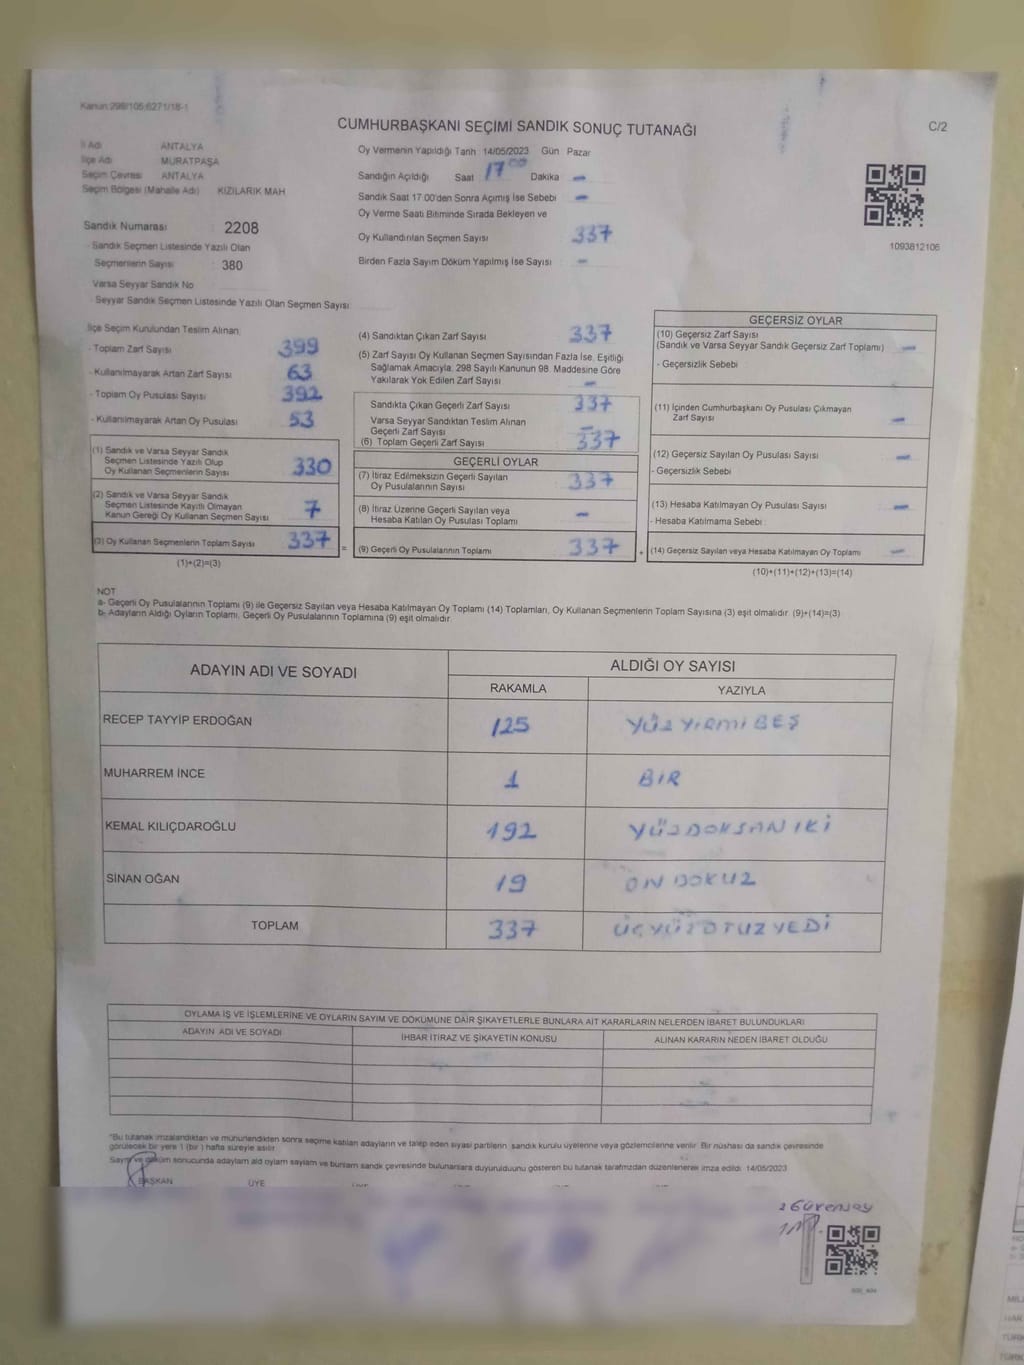 Kanun:298/105;6271/18-1
CUMHURBAŞKANI SEÇİMİ SANDIK SONUÇ TUTANAĞI
C/2
İl Adı ANTALYA
İlçe Adı MURATPAŞA
Seçim Çevresi ANTALYA
Seçim Bölgesi (Mahalle Adı) KIZILARIK MAH
Sandık Numarası : 2208
- Sandık Seçmen Listesinde Yazılı Olan
Seçmenlerin Sayısı : 380
Varsa Seyyar Sandık No
- Seyyar Sandık Seçmen Listesinde Yazılı Olan Seçmen Sayısı:
Oy Vermenin Yapıldığı Tarih 14/05/2023 Gün Pazar
Sandığın Açıldığı Saat 17 00 Dakika -
Sandık Saat 17:00'den Sonra Açımış İse Sebebi -
Oy Verme Saati Bitiminde Sırada Bekleyen ve
Oy Kullandırılan Seçmen Sayısı 337
Birden Fazla Sayım Döküm Yapılmış İse Sayısı -
1093812106
İlçe Seçim Kurulundan Teslim Alınan;
- Toplam Zarf Sayısı 399
- Kullanılmayarak Artan Zarf Sayısı 63
- Toplam Oy Pusulası Sayısı 392
- Kullanılmayarak Artan Oy Pusulası 53
(1) Sandık ve Varsa Seyyar Sandık
Seçmen Listesinde Yazılı Olup
Oy Kullanan Seçmenlerin Sayısı 330
(2) Sandık ve Varsa Seyyar Sandık
Seçmen Listesinde Kayıtlı Olmayan
Kanun Gereği Oy Kullanan Seçmen Sayısı 7
(3) Oy Kullanan Seçmenlerin Toplam Sayısı 337
(1)+(2)=(3)
=
(4) Sandıktan Çıkan Zarf Sayısı 337
(5) Zarf Sayısı Oy Kullanan Seçmen Sayısından Fazla İse, Eşitliği
Sağlamak Amacıyla, 298 Sayılı Kanunun 98. Maddesine Göre
Yakılarak Yok Edilen Zarf Sayısı -
Sandıkta Çıkan Geçerli Zarf Sayısı 337
Varsa Seyyar Sandıktan Teslim Alınan
Geçerli Zarf Sayısı -
(6) Toplam Geçerli Zarf Sayısı 337
GEÇERLİ OYLAR
(7) İtiraz Edilmeksizin Geçerli Sayılan
Oy Pusulalarının Sayısı 337
(8) İtiraz Üzerine Geçerli Sayılan veya
Hesaba Katılan Oy Pusulası Toplamı -
(9) Geçerli Oy Pusulalarının Toplamı 337
+
GEÇERSİZ OYLAR
(10) Geçersiz Zarf Sayısı
(Sandık ve Varsa Seyyar Sandık Geçersiz Zarf Toplamı) -
- Geçersizlik Sebebi
(11) İçinden Cumhurbaşkanı Oy Pusulası Çıkmayan
Zarf Sayısı -
(12) Geçersiz Sayılan Oy Pusulası Sayısı -
- Geçersizlik Sebebi
(13) Hesaba Katılmayan Oy Pusulası Sayısı -
- Hesaba Katılmama Sebebi :
(14) Geçersiz Sayılan veya Hesaba Katılmayan Oy Toplamı -
(10)+(11)+(12)+(13)=(14)
NOT
a- Geçerli Oy Pusulalarının Toplamı (9) ile Geçersiz Sayılan veya Hesaba Katılmayan Oy Toplamı (14) Toplamları, Oy Kullanan Seçmenlerin Toplam Sayısına (3) eşit olmalıdır. (9)+(14)=(3)
b- Adayların Aldığı Oyların Toplamı, Geçerli Oy Pusulalarının Toplamına (9) eşit olmalıdır.
ADAYIN ADI VE SOYADI
ALDIĞI OY SAYISI
RAKAMLA YAZIYLA
RECEP TAYYİP ERDOĞAN 125 YÜZ YİRMİ BEŞ
MUHARREM İNCE 1 BİR
KEMAL KILIÇDAROĞLU 192 YÜZ DOKSAN İKİ
SİNAN OĞAN 19 ON DOKUZ
TOPLAM 337 ÜÇ YÜZ OTUZ YEDİ
OYLAMA İŞ VE İŞLEMLERİNE VE OYLARIN SAYIM VE DÖKÜMÜNE DAİR ŞİKAYETLERLE BUNLARA AİT KARARLARIN NELERDEN İBARET BULUNDUKLARI
ADAYIN ADI VE SOYADI İHBAR İTİRAZ VE ŞİKAYETİN KONUSU ALINAN KARARIN NEDEN İBARET OLDUĞU
*Bu tutanak imzalandıktan ve mühürlendikten sonra seçime katılan adayların ve talep eden siyasi partilerin, sandık kurulu üyelerine veya gözlemcilerine verilir. Bir nüshası da sandık çevresinde
görülecek bir yere 1 (bir ) hafta süreyle asılır.
Sayım ve döküm sonucunda adayların ald oyların sayıları ve bunların sandık çevresinde bulunanlara duyurulduunu gösteren bu tutanak tarafımızdan düzenlenerek imza edildi. 14/05/2023
BAŞKAN ÜYE